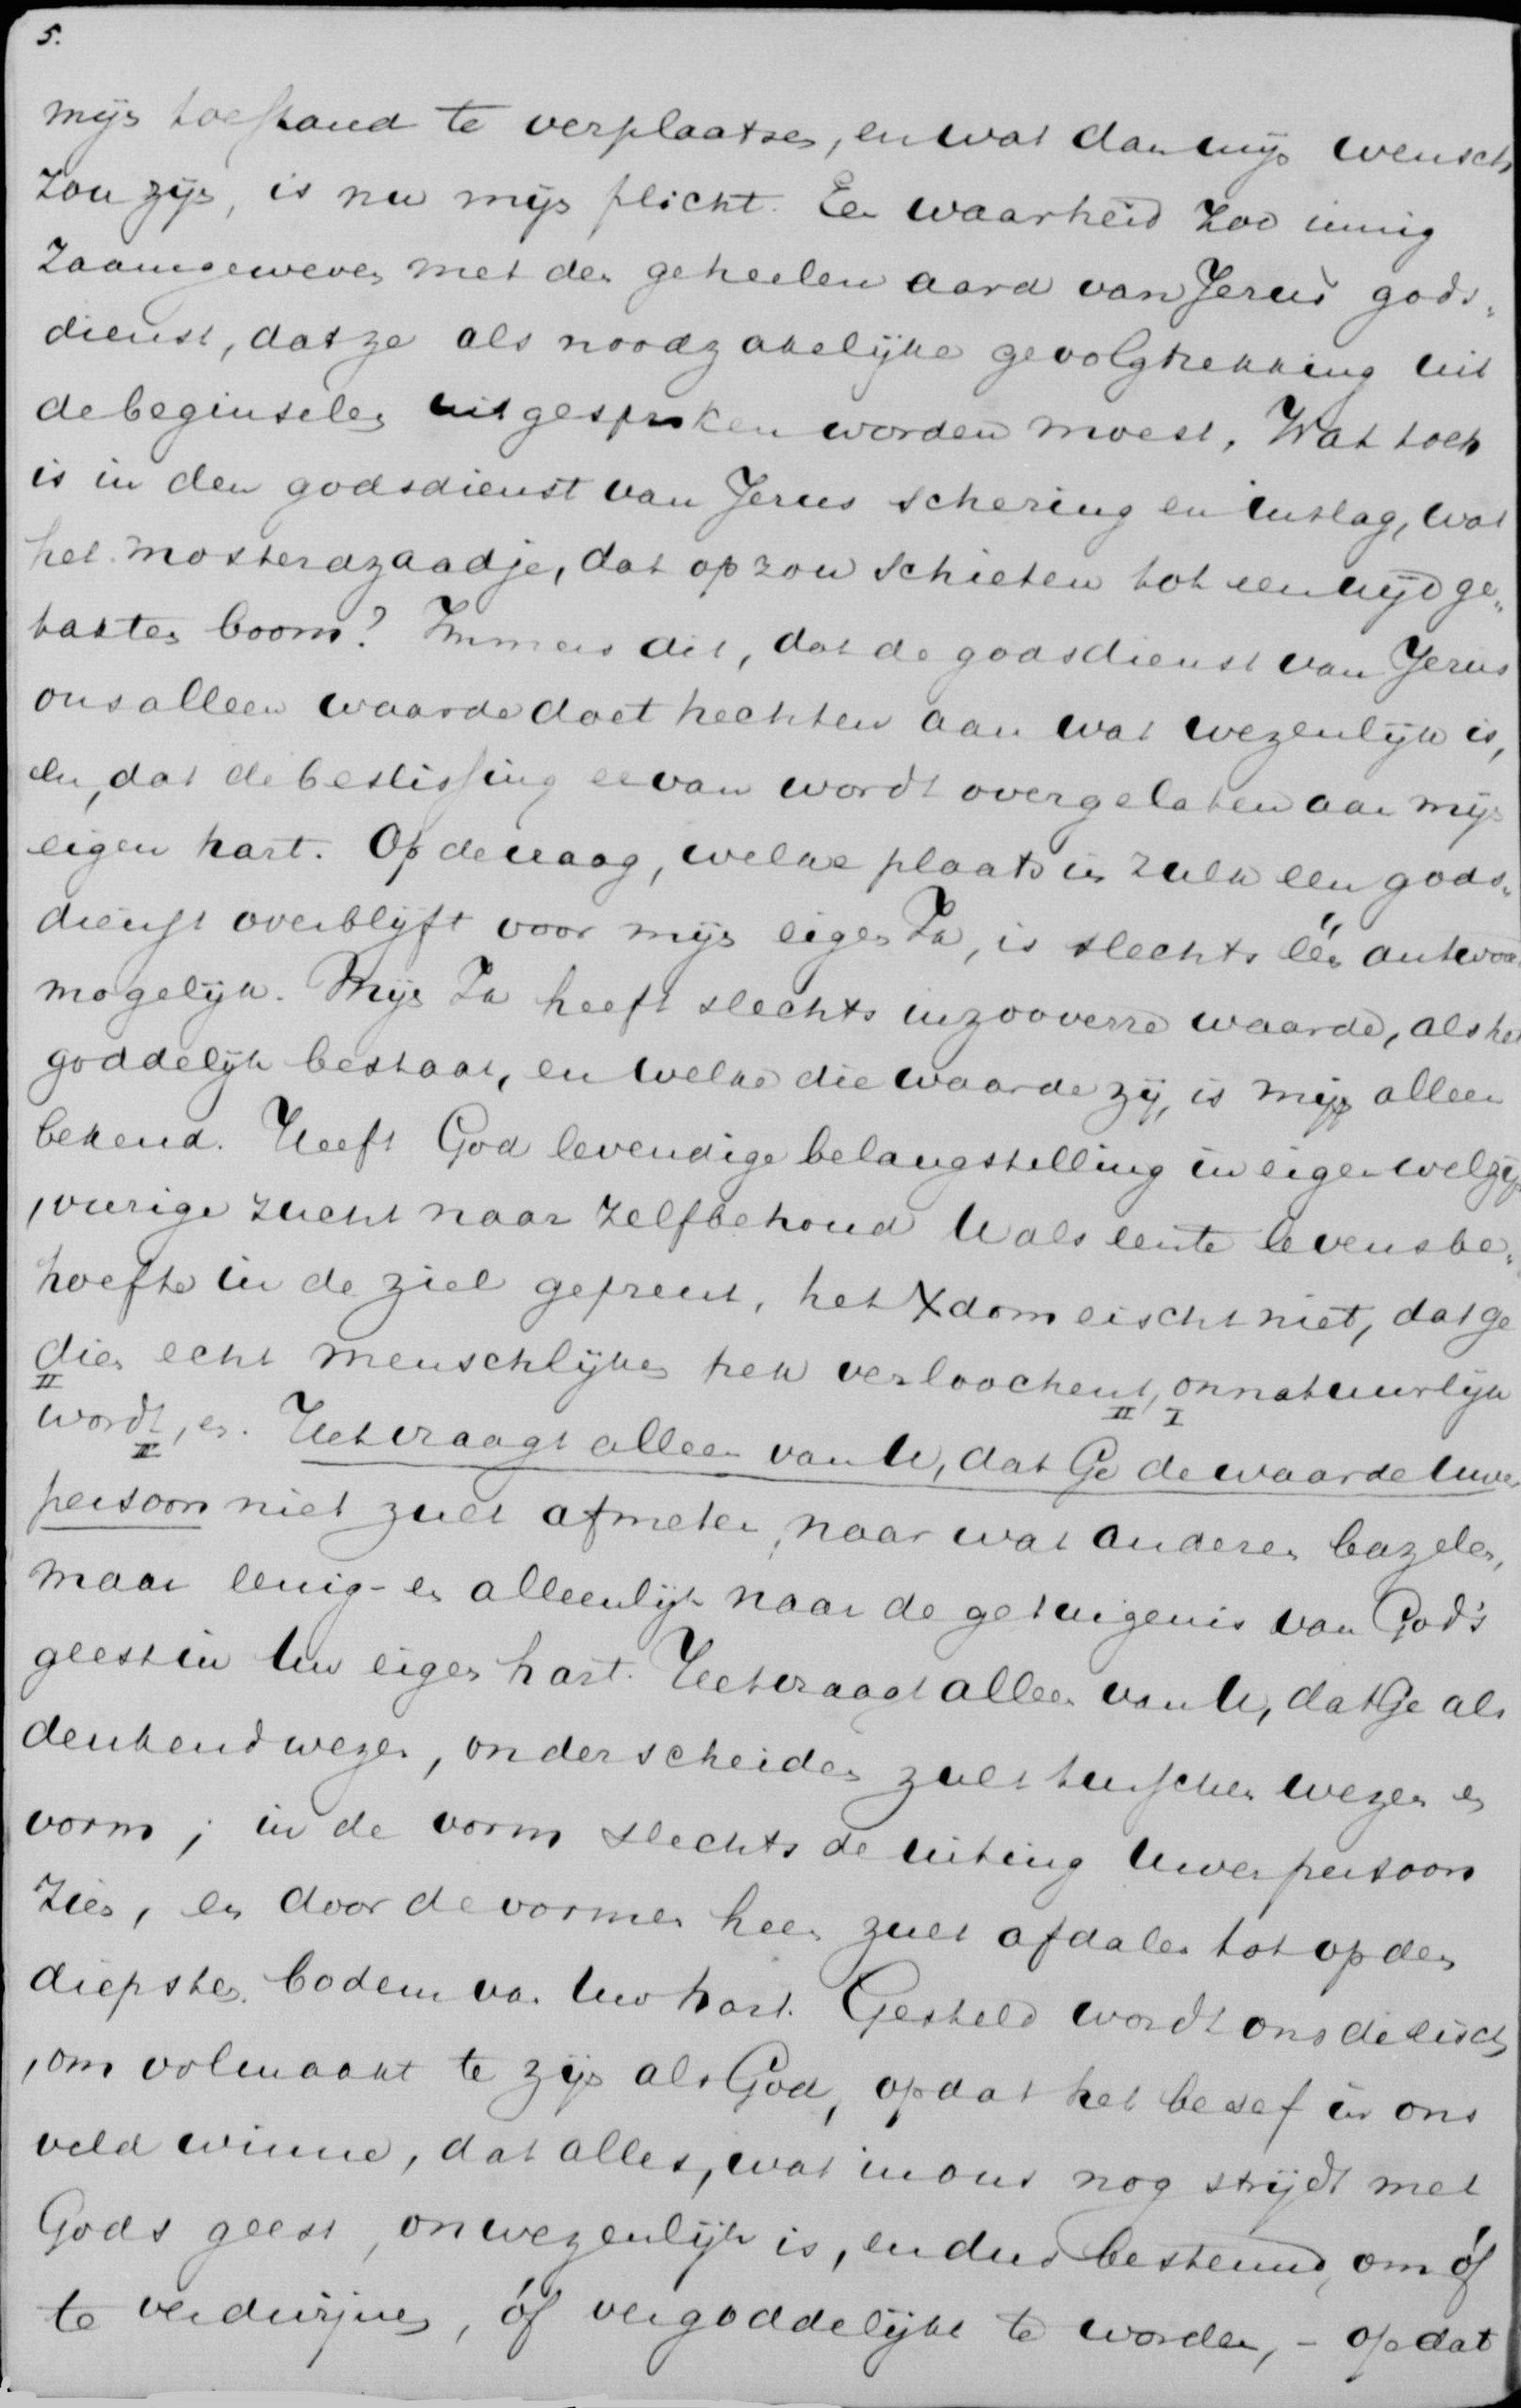 5.
mijn toestand te verplaatsen, en wat dan mijn wensch
zou zijn, is nu mijn plicht. Een waarheid zoo innig
zaamgeweven met den geheelen aard van Jezus' gods„
dienst, dat ze als noodzakelijke gevolgtrekking uit
de beginselen uitgesproken worden moest. Wat toch
is in den godsdienst van Jezus schering en inslag, wat
het mosterdzaadje, dat op zou schieten tot een wijd ge„
takten boom? Immers dit, dat de godsdienst van Jezus
ons alleen waarde doet hechten aan wat wezenlijk is,
en, dat de beslissing ervan wordt overgelaten aan mijn
eigen hart. Op de vraag, welke plaats in zulk een gods„
dienst overblijft voor mijn eigen Ik, is slechts één antwoord
mogelijk. Mijn Ik heeft slechts inzooverre waarde, als het
goddelijk bestaat, en welke die waarde zij, is mij alleen
bekend. Heeft God levendige belangstelling in eigen welzijn
, vurige zucht naar zelfbehoud U als eerste levensbe„
hoefte in de ziel geprent, het Xdom eischt niet, dat ge
dien echt menschlijken trek verloochent, onnatuurlijk
II II I
wordt, en. Het vraagt alleen van U, dat Ge de waarde Uwer
III
persoon niet zult afmeten, naar wat anderen bazelen,
maar eenig- en alleenlijk naar de getuigenis van God's
geest in Uw eigen hart. Het vraagt alleen van U, dat Ge als
denkend wezen, onderscheiden zult tusschen wezen en
vorm; in de vorm slechts de uiting Uwer persoon
zien, en door de vormen heen zult afdalen tot op den
diepsten bodem van Uw hart. Gesteld wordt ons de eisch
, om volmaakt te zijn als God, opdat het besef in ons
veld winne, dat alles, wat in ons nog strijdt met
Gods geest, onwezenlijk is, en dus bestemd, om óf
te verdwijnen, óf vergoddelijkt te worden, - opdat